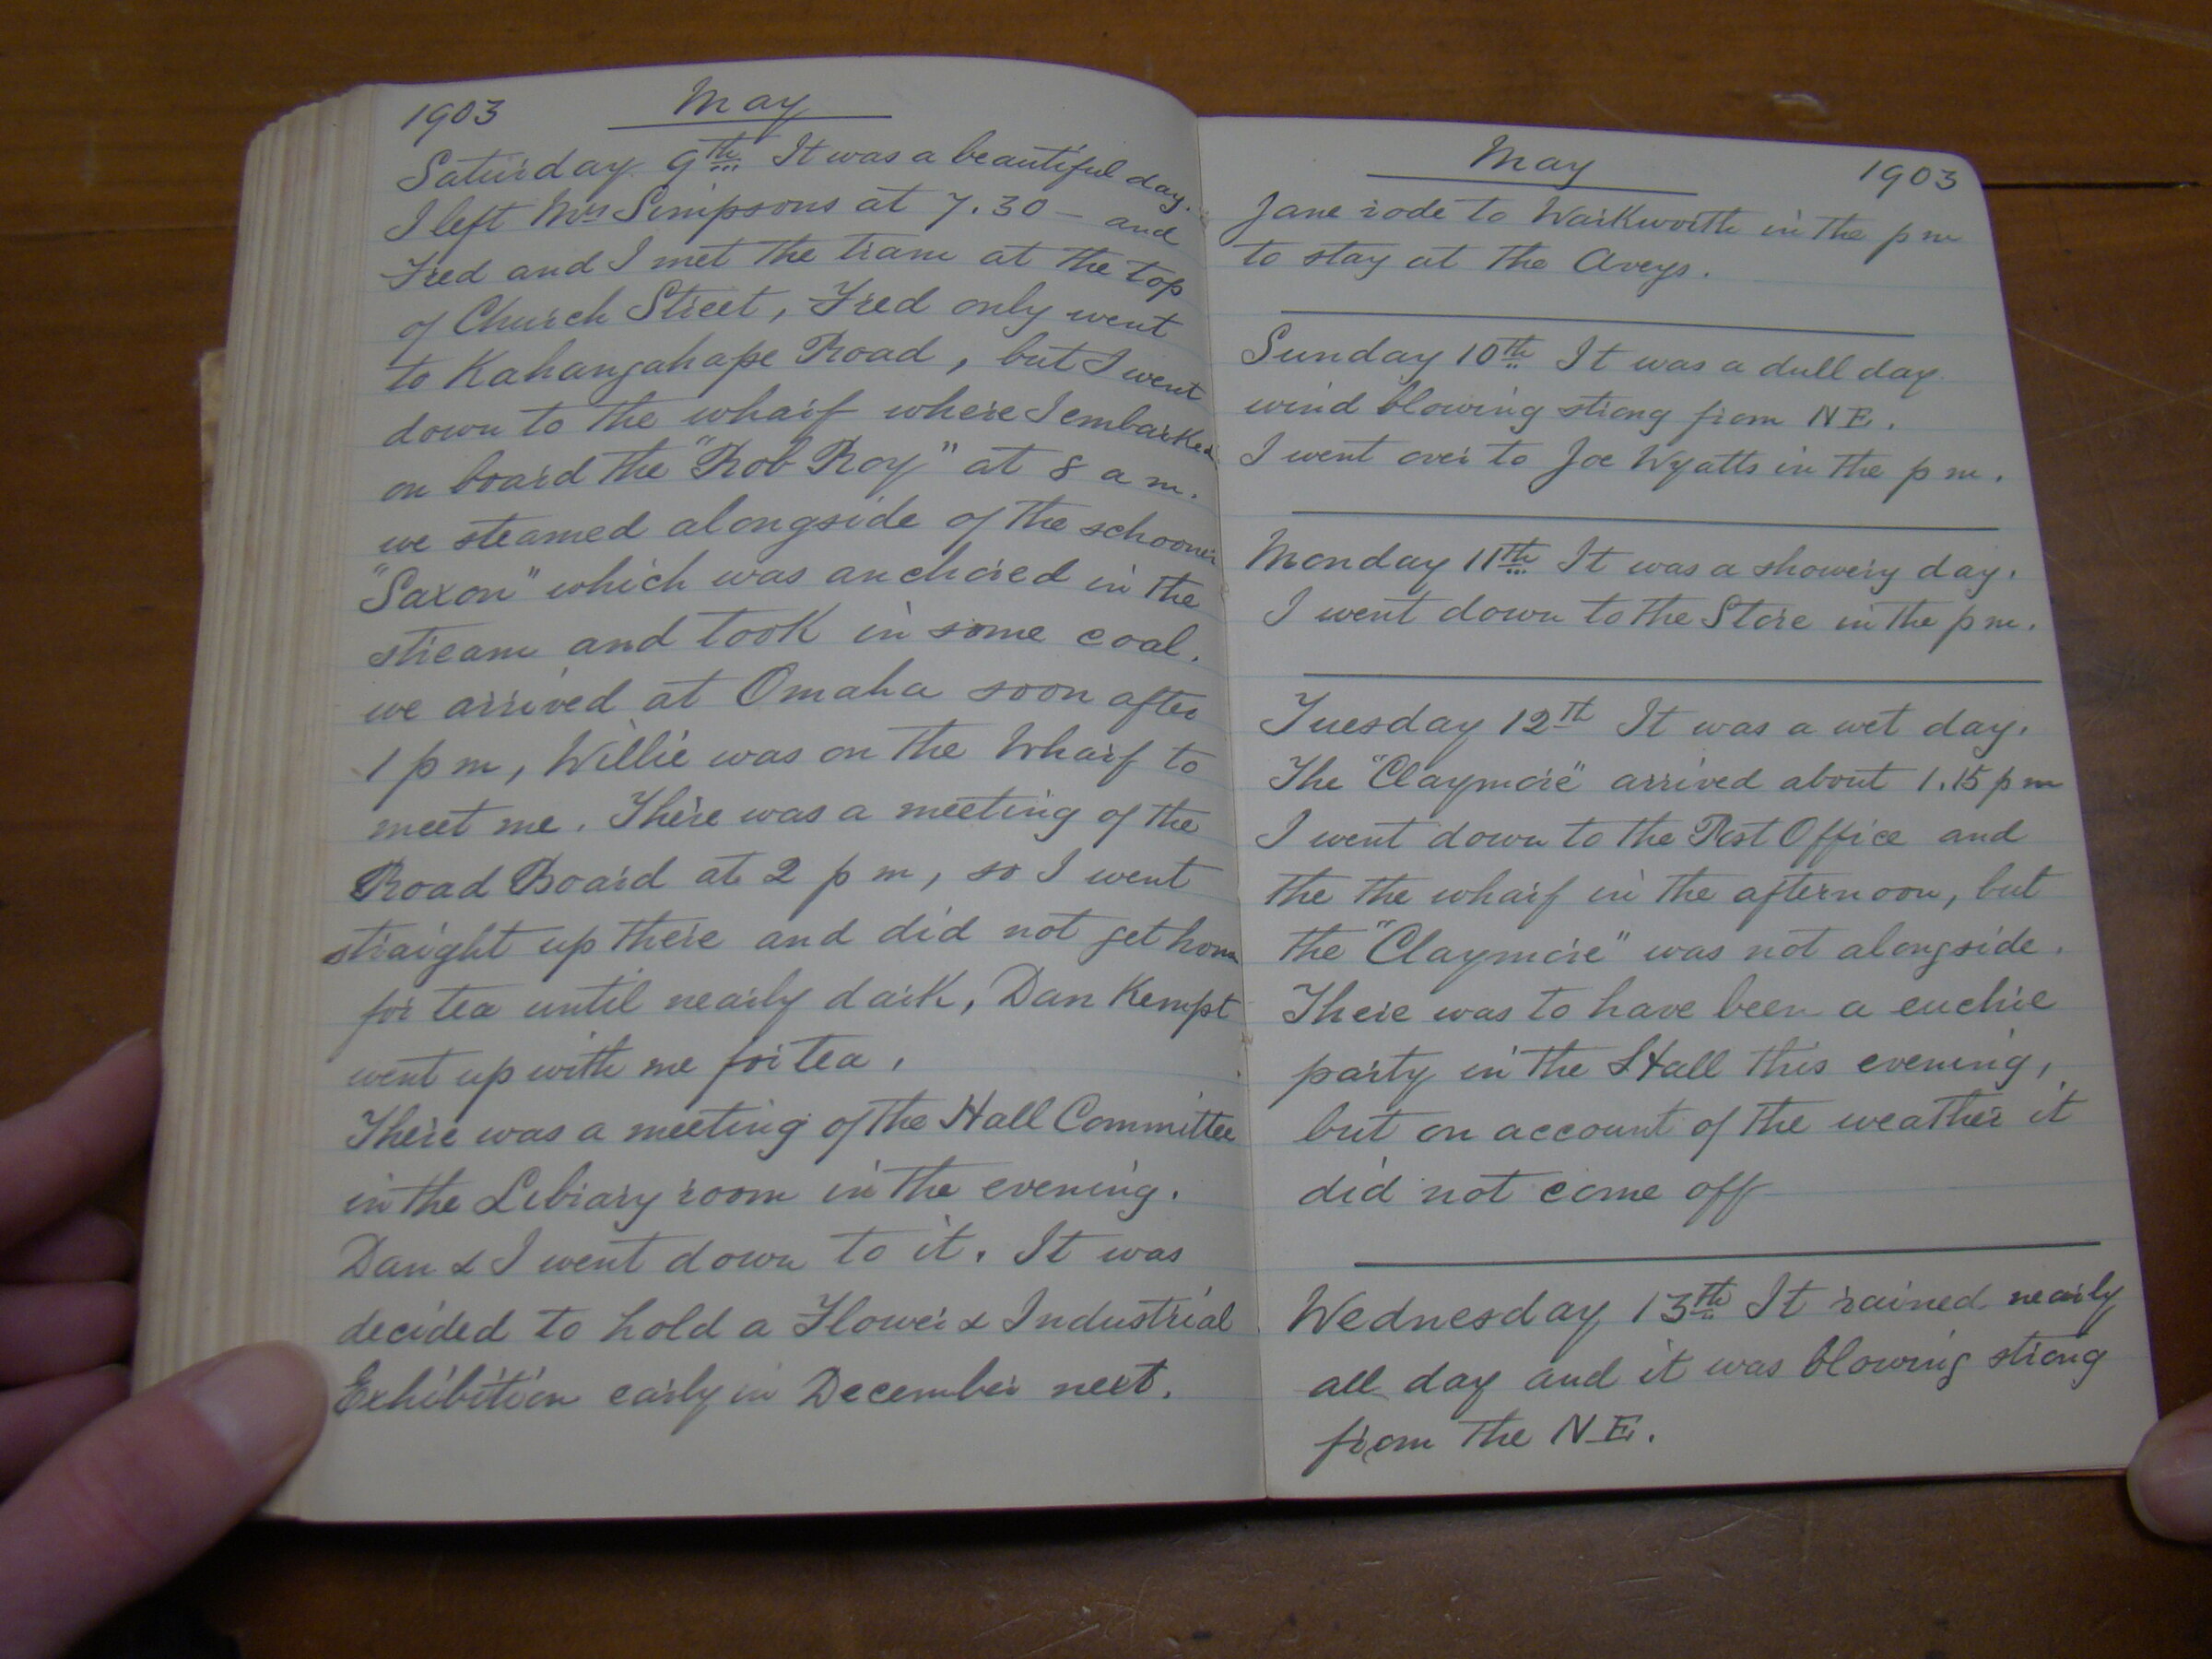 1903 May
Saturday 9th It was a beautiful day.
I left Mrs Simpsons at 7.30 – and
Fred and I met the tram at the top
of Church Street, Fred only went
to Kahangahape Road, but I went
down to the wharf where I embarked
on board the "Rob Roy" at 8 a m.
we steamed alongside of the schooner
"Saxon" which was anchored in the
stream and took in some coal.
we arrived at Omaha soon after
1 p m, Willie was on the Wharf to
meet me. There was a meeting of the
Road Board at 2 p m, so I went
straight up there and did not get home
for tea until nearly dark, Dan Kempt
went up with me for tea.
There was a meeting of the Hall Committee
in the Library room in the evening.
Dan & I went down to it. It was
decided to hold a Flower & Industrial
Exhibition early in December next.
May 1903
Jane rode to Warkworth in the p m
to stay at the Aveys.
Sunday 10th It was a dull day
wind blowing strong from N E.
I went over to Joe Wyatts in the p m.
Monday 11th It was a showery day.
I went down to the Store in the p m.
Tuesday 12th It was a wet day.
The "Claymore" arrived about 1.15 p m
I went down to the Post Office and
the the wharf in the afternoon, but
the "Claymore" was not alongside.
There was to have been a euchre
party in the Hall this evening,
but on account of the weather it
did not come off
Wednesday 13th It rained nearly
all day and it was blowing strong
from the N E.